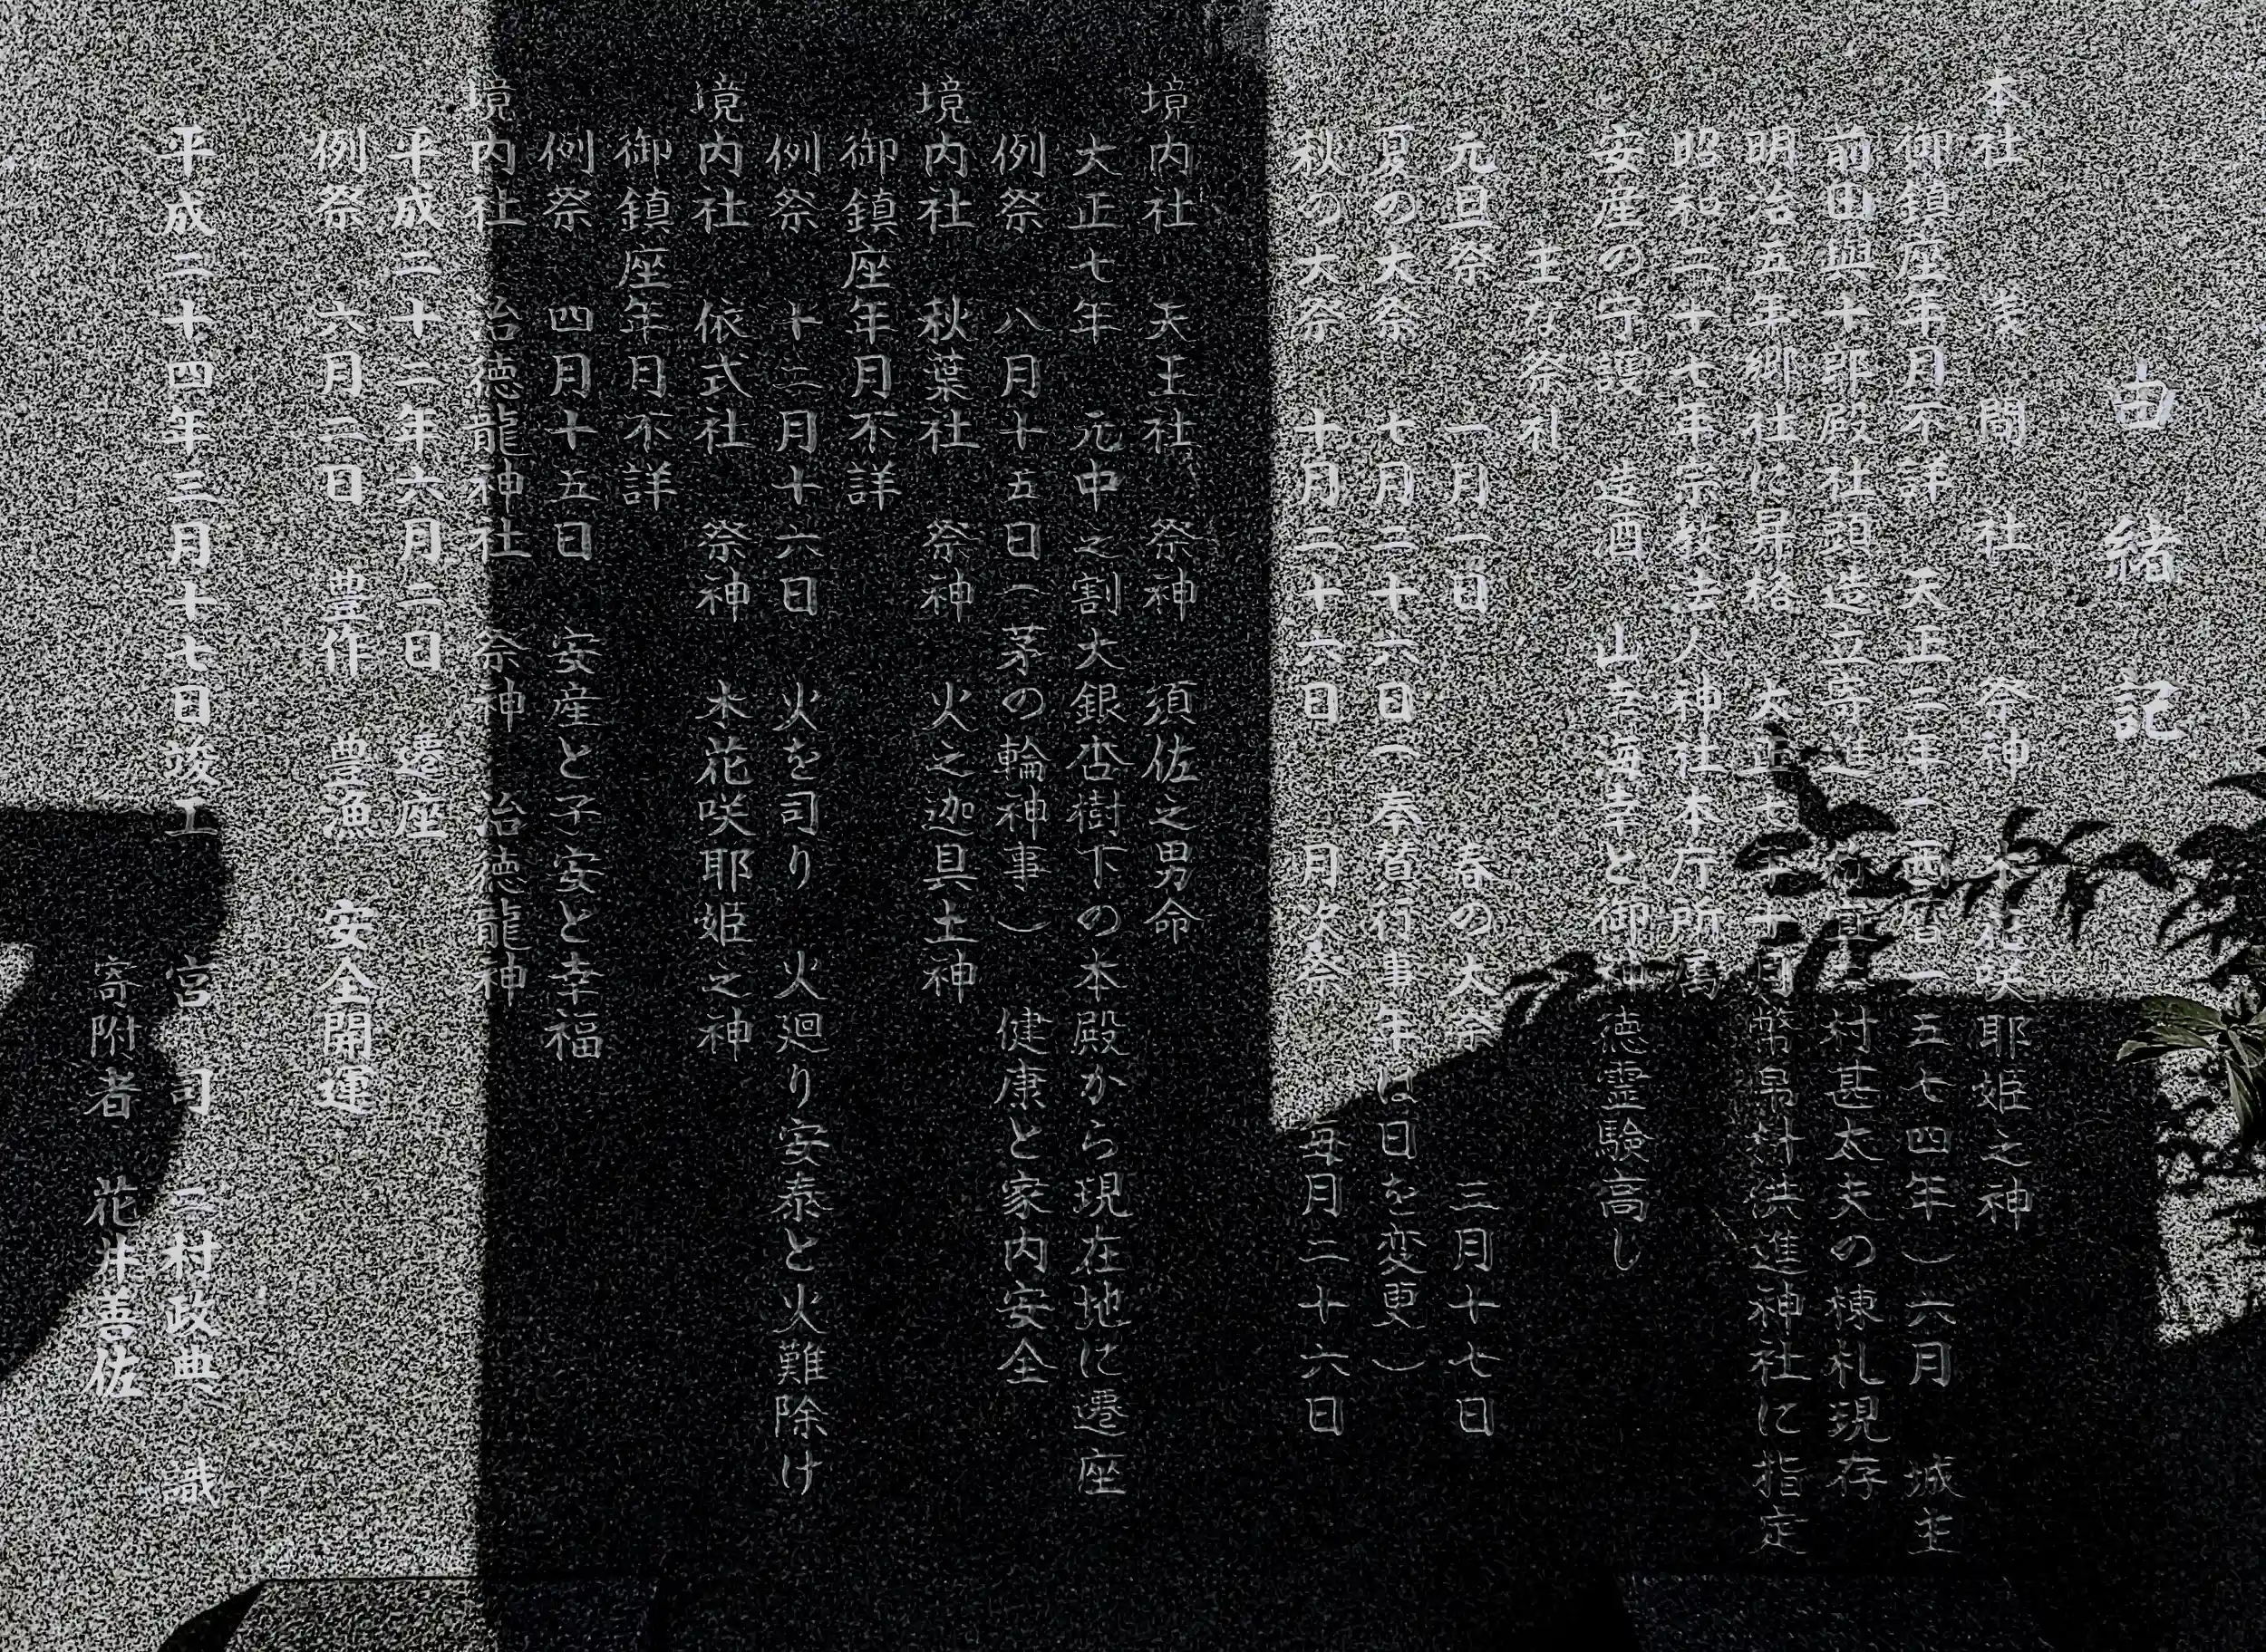 由緒記
本社 浅間社 祭神 木花咲耶姫之神
御鎮座年月不詳 天正二年(西暦一五七四年)六月 城主
前田與十郎殿社頭造立寄進 村甚太夫の棟札現存
明治五年郷社に昇格 大正七年十月幣帛料供進神社に指定
昭和二十七年宗教法人神社本庁所属
安産の守護 造酒 山幸海幸と御神徳霊験高し
主な祭礼
元旦祭 一月一日 春の大祭 三月十七日
夏の大祭 七月二十六日(奉賛行事年は日を変更)
秋の大祭 十月二十六日 月次祭 毎月二十六日
境内社 天王社 祭神 須佐之男命
大正七年 元中之割大銀杏樹下の本殿から現在地に遷座
例祭 八月十五日(茅の輪神事) 健康と家内安全
境内社 秋葉社 祭神 火之迦具土神
御鎮座年月不詳
例祭 十二月十六日 火を司り 火廻り安泰と火難除け
境内社 依式社 祭神 木花咲耶姫之神
御鎮座年月不詳
例祭 四月十五日 安産と子安と幸福
境内社 治徳龍神社 祭神 治徳龍神
平成二十二年六月二日 遷座
例祭 六月二日 豊作 豊漁 安全開運
平成二十四年三月十七日竣工 宮司 二村政典 識
寄附者 花井善佐